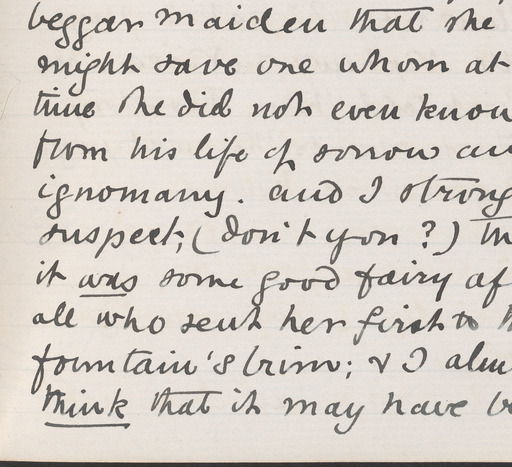 beggar maiden that she
might save one whom at
time she did not even know
from his life of sorrow an
ignomany. and I strong
suspect; (don't you?) th
it was some good fairy af
all who sent her first to th
fountain's brim; & I alm
think that it may have b